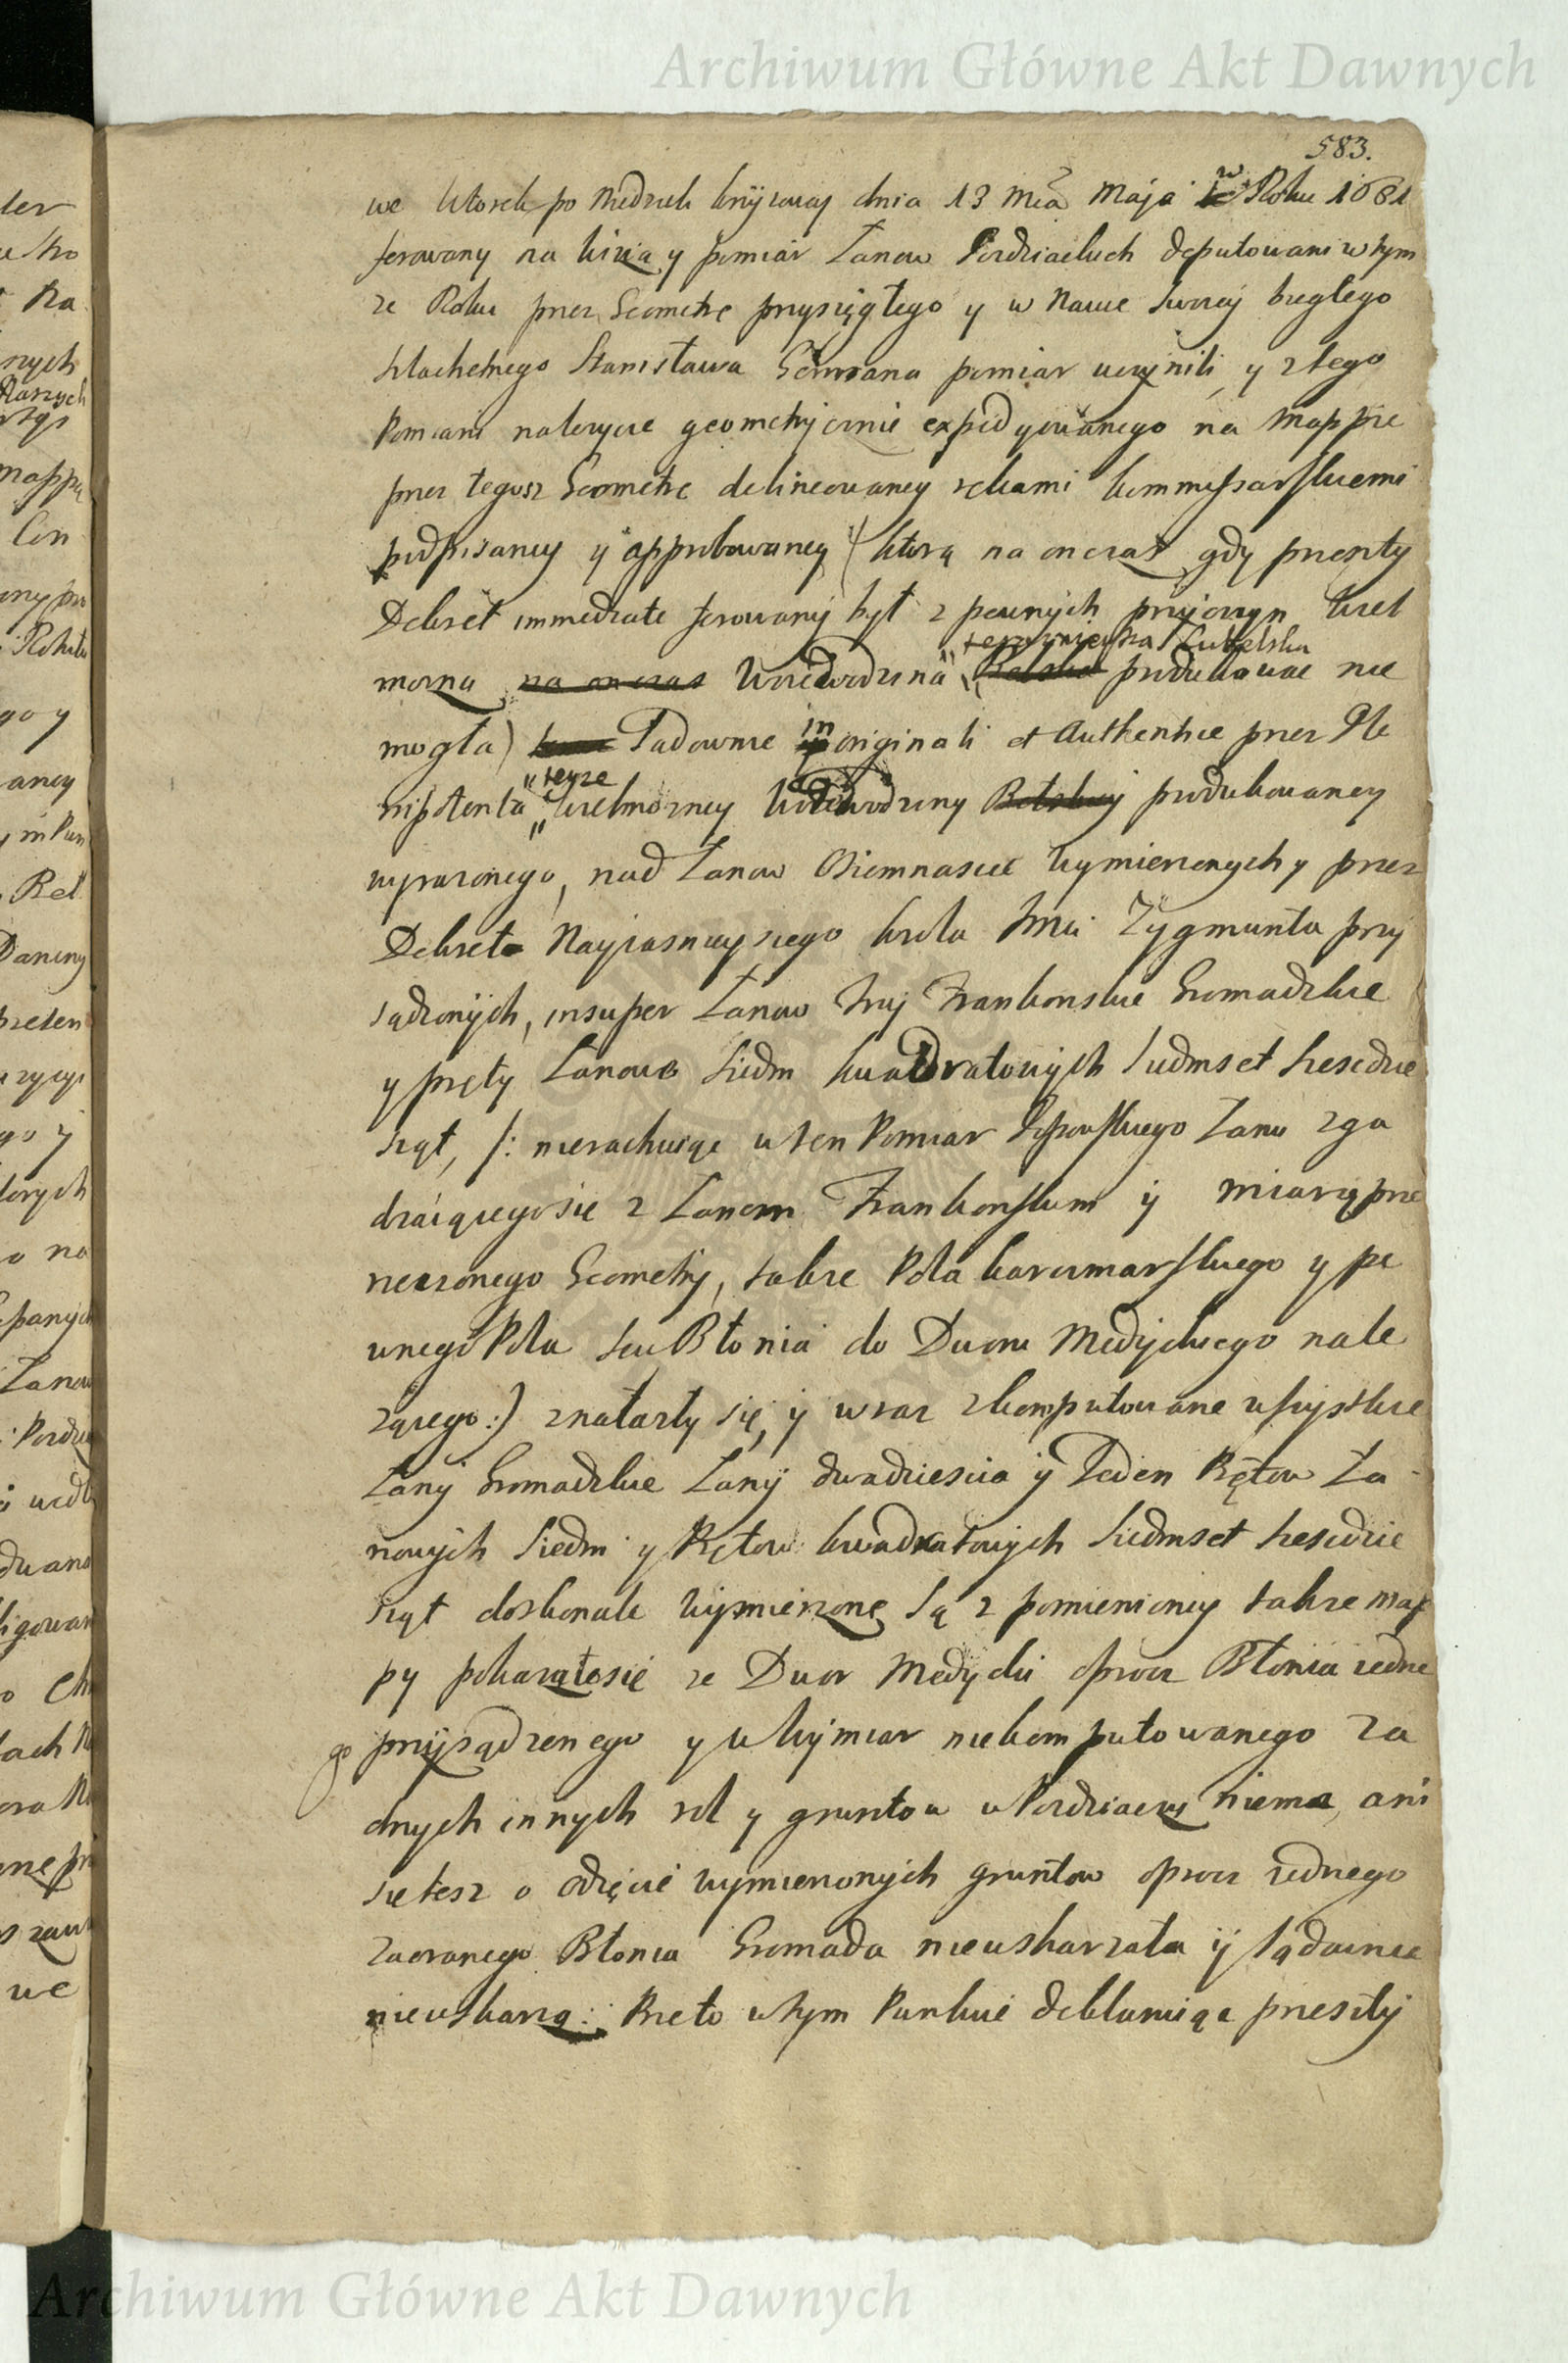 Archiwum Główne Akt Dawnych
583.
we Wtorek po Niedzieli krzyżowey dnia 13 Mca Maja w Roku 1681
ferowany na wizią y pomiar Łanow Pozdziackich deputowani w tym
ze Roku przez Geometrę przysięgłego y w Nauce swoiey biegłego
szlachetnego Stanisława pomiar uczynili y z tego
Pomiaru należycie geometrycznie expedyowanego na Mappie
przez tegosz Geometrę delineowaney rękami kommissarskiemi
podpisaney y approbowaney (ktorą na on czas gdy przeszły
Dekret immediate ferowany był z pewnych przyczyn Wiel
terazniejsza Lubelska
można na on czas Woiewodzina Belska produkować nie
mogła) Ładownie in originali et Authentice przez Ple
teyze
nipotenta wielmożney Woiewodziny Belskiey produkowaney
wyrażonego, nad Łanow Osiemnascie wymierzonych y przez
Dekreta Nayiasnieyszego krola Jmci Zygmunta przy
sądzonych, insuper Łanow trzy Frankonskie Gromadzkie
y pręty Łanowe siedm kwadratowych siedmset szescdzie
siąt, /: nierachuiąc w ten Pomiar Popowskiego Łanu zga
dzaiącego się z Łanem Frankonskim y miarą prze
rzeczonego Geometry, także Pola karczmarskiego y pe
wnego Pola seu Błonia do Dworu Medyckiego nale
żącego:) znalazły się, y wraz zkomputowane wszystkie
Łany Gromadzkie Łany dwadziescia y Jeden Prętow Ła
nowych Siedm y Prętow kwadratowych Siedmset szescdzie
siąt doskonale wymierzone są z pomienioney także map
py pokazało sie ze Dwor Medycki oprocz Błonia iedne
go przysądzonego y w Wymiar niekomputowanego za
dnych innych rol y gruntow w Pozdziaczu niema, ani
się tesz o odięcie wymierzonych gruntow oprocz iednego
zaoranego Błonia Gromada nieuskarżała y sądownie
nieuskarża: Przeto w tym Punkcie deklaruiąc przeszły
Archiwum Główne Akt Dawnych